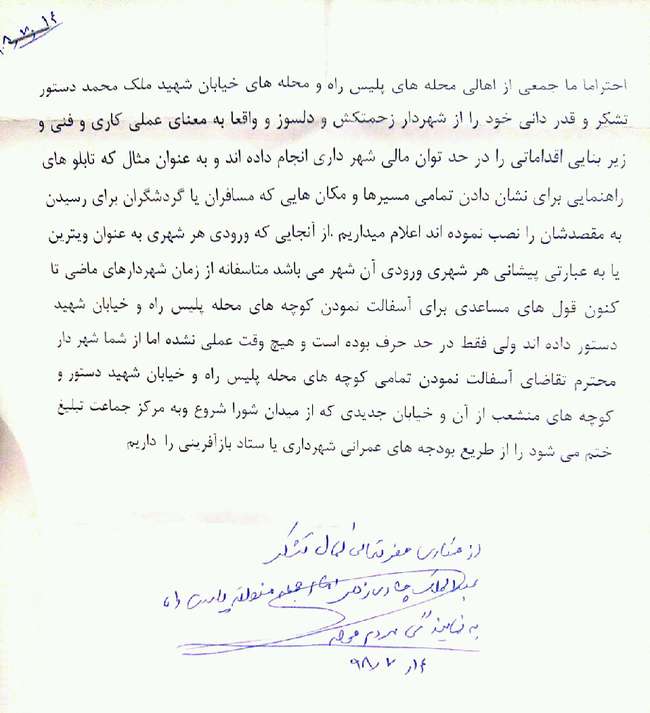 ۹۸/۷/۱۴
احتراما ما جمعی از اهالی محله های پلیس راه و محله های خیابان شهید ملک محمد دستور
تشکر و قدر دانی خود را از شهردار زحمتکش و دلسوز و واقعا به معنای عملی کاری و فنی و
زیر بنایی اقداماتی را در حد توان مالی شهر داری انجام داده اند و به عنوان مثال که تابلو های
راهنمایی برای نشان دادن تمامی مسیرها و مکان هایی که مسافران یا گردشگران برای رسیدن
به مقصدشان را نصب نموده اند اعلام میداریم .از آنجایی که ورودی هر شهری به عنوان ویترین
یا به عبارتی پیشانی هر شهری ورودی آن شهر می باشد متاسفانه از زمان شهردارهای ماضی تا
کنون قول های مساعدی برای آسفالت نمودن کوچه های محله پلیس راه و خیابان شهید
دستور داده اند ولی فقط در حد حرف بوده است و هیچ وقت عملی نشده اما از شما شهر دار
محترم تقاضای آسفالت نمودن تمامی کوچه های محله پلیس راه و خیابان شهید دستور و
کوچه های منشعب از آن و خیابان جدیدی که از میدان شورا شروع وبه مرکز جماعت تبلیغ
ختم می شود را از طریع بودجه های عمرانی شهرداری یا ستاد بازآفرینی را داریم
از همکاری حضرتعالی کمال تشکر
عبدالمالک
به نمایندگی مردم محله
۹۸/۷/۱۴